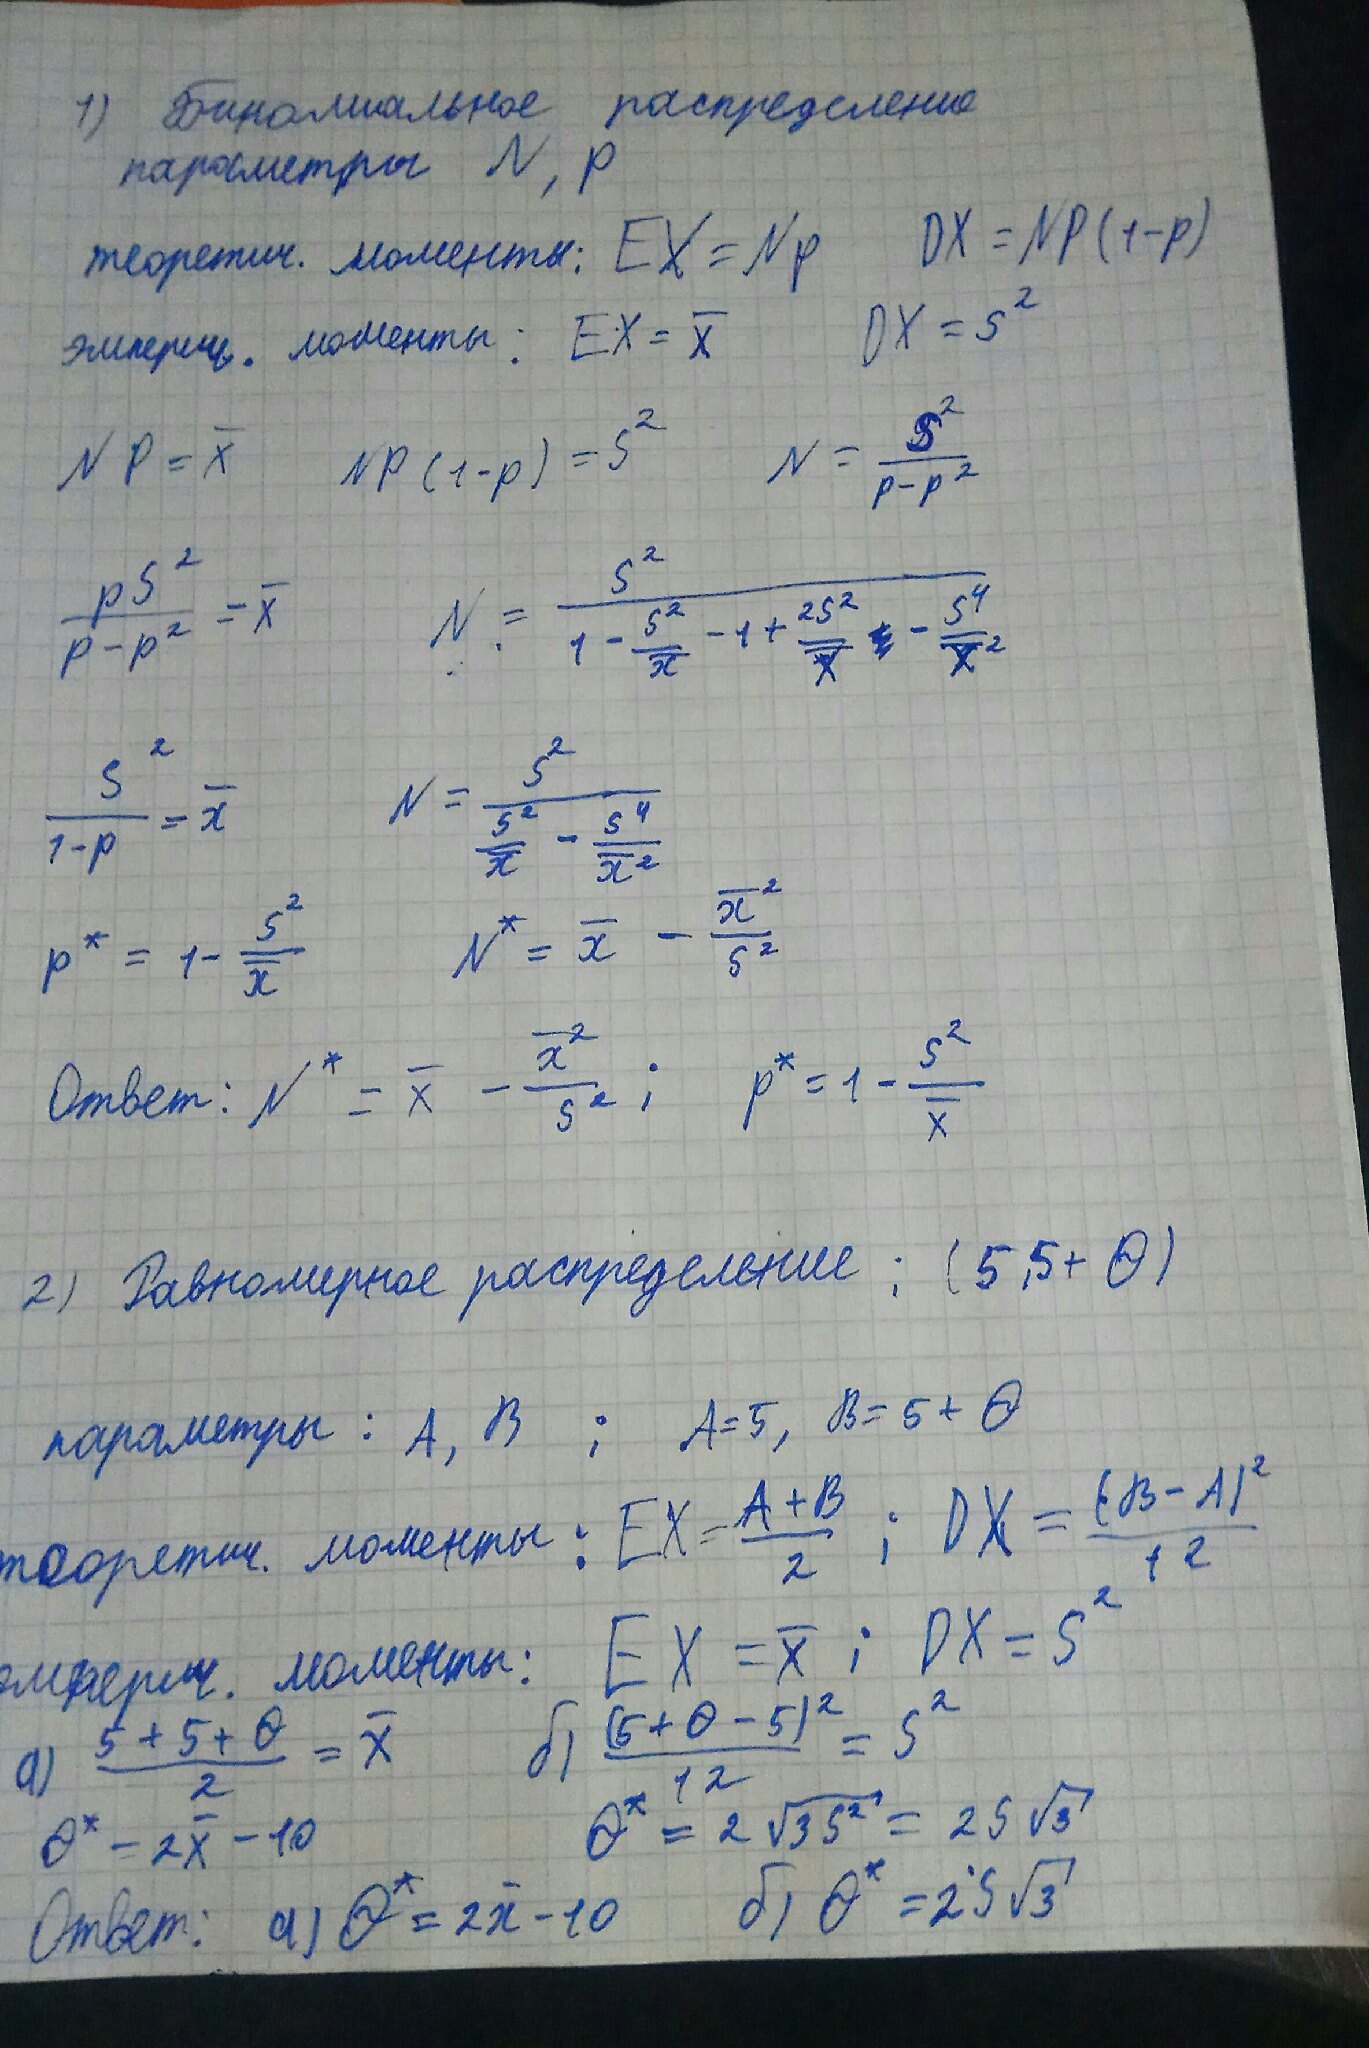 1) Биномиальное распределение
параметры N, p
теоретич. моменты: EX = Np DX = NP(1-p)
эмперич. моменты: EX = x̅ DX = S²
NP = x̅ NP(1-p) = S² N = S²/(p-p²)
pS²/(p-p²) = x̅ N = S²/(1 - S²/x̅ - 1 + 2S²/x̅ - S⁴/x̅²)
S²/(1-p) = x̅ N = S²/(S²/x̅ - S⁴/x̅²)
p* = 1 - S²/x̅ N* = x̅ - x̅²/S²
Ответ: N* = x̅ - x̅²/S²; p* = 1 - S²/x̅
2) Равномерное распределение; (5,5+θ)
параметры: A, B; A=5, B=5+θ
теоретич. моменты: EX = (A+B)/2; DX = (B-A)²/12
эмперич. моменты: EX = x̅; DX = S²
а) (5+5+θ)/2 = x̅ б) (5+θ-5)²/12 = S²
θ* = 2x̅ - 10 θ* = 2√3S² = 2S√3
Ответ: а) θ* = 2x̅ - 10 б) θ* = 2S√3